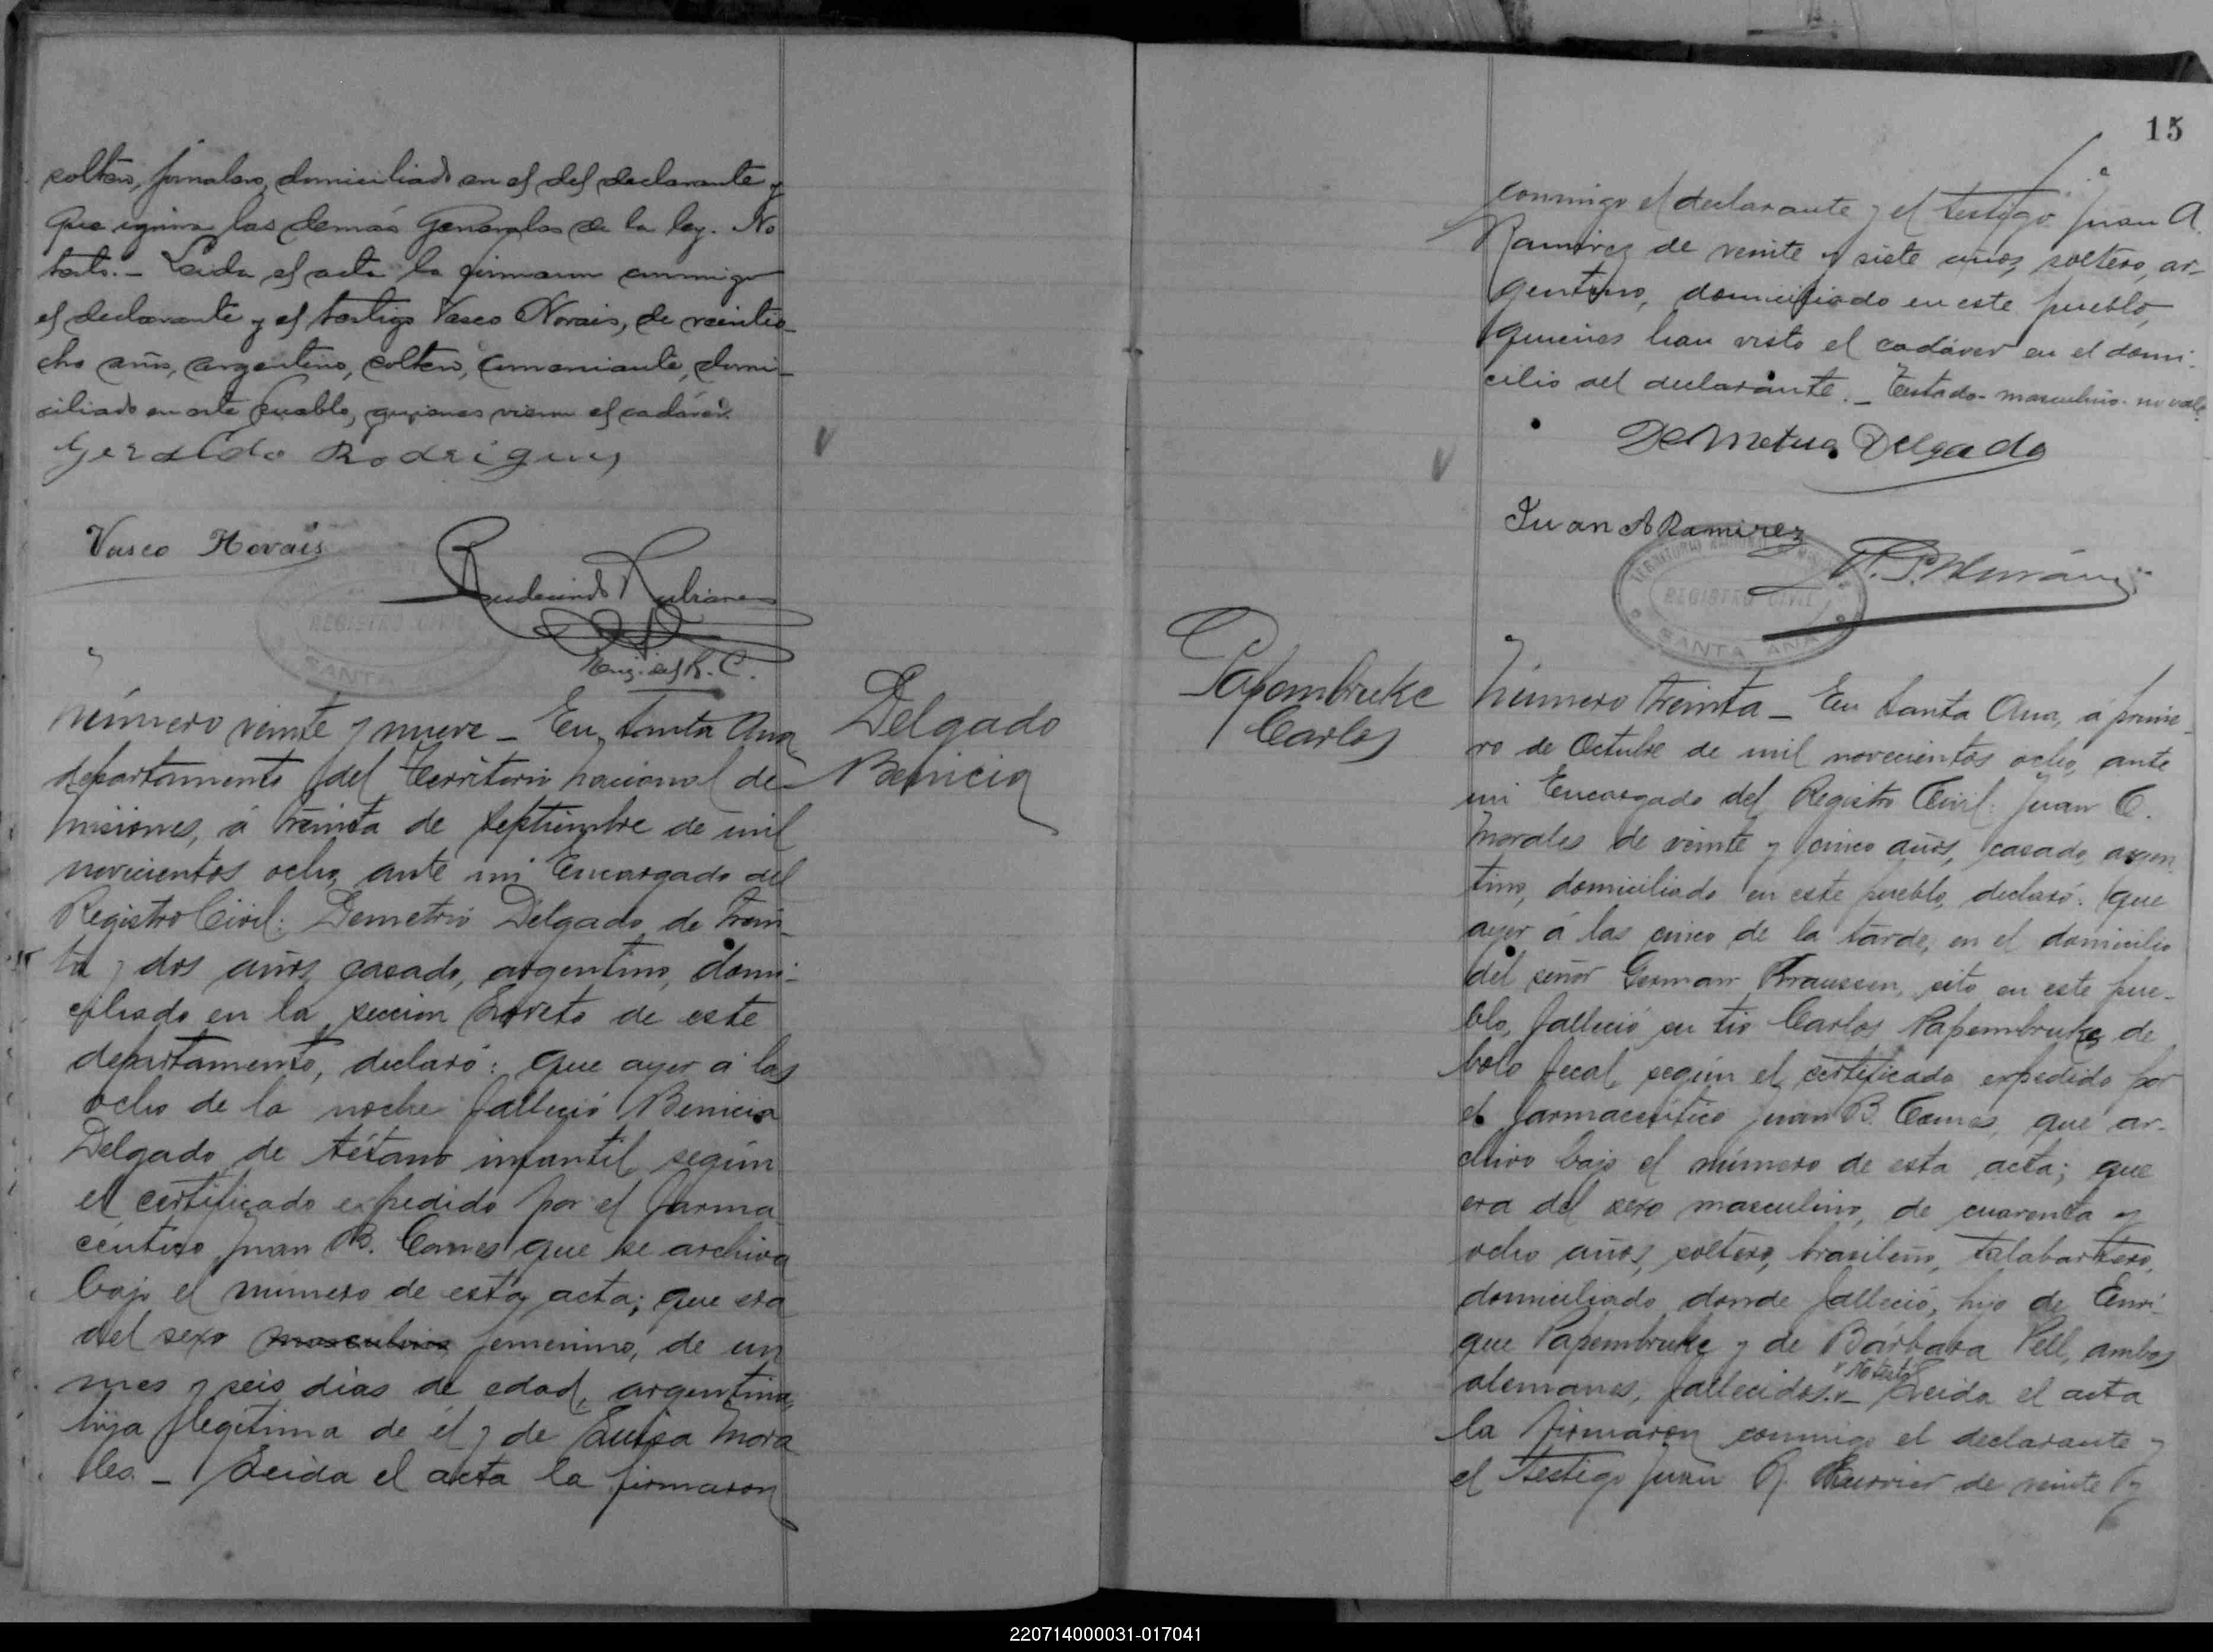 soltero, jornalero, domiciliado en el del declarante y
que ignora las demás generales de la ley. No
testó.- Leida el acta la firmaron conmigo
el declarante y el testigo Vasco Novais, de veintio-
cho años, argentino, soltero, comerciante, domi-
ciliado en este Pueblo, quienes vieron el cadáver.
Geraldo Rodrigues
Vasco Novais
Rudecindo
Enc. del R. C.
REGISTRO CIVIL
SANTA
Número veinte y nueve - En Santa Ana
departamento del Territorio Nacional de
Misiones, á treinta de Septiembre de mil
novecientos ocho, ante mi Encargado del
Registro Civil: Demetrio Delgado de trein-
ta y dos años, casado, argentino, domi-
ciliado en la seccion Loreto de este
departamento, declaró: que ayer á las
ocho de la noche falleció Benicia
Delgado de tétano infantil, según
el certificado expedido por el farma-
céutico Juan B. Comes que se archiva
bajo el número de esta acta; que era
del sexo masculino femenino, de un
mes y seis dias de edad, argentina,
hija legítima de él y de Luisa Mora
les. - Leida el acta la firmaron
Delgado
Benicia
15
conmigo el declarante y el testigo Juan A.
Ramirez de veinte y siete años, soltero, ar-
gentino, domiciliado en este pueblo,
quienes han visto el cadáver en el domi-
cilio del declarante. - Testado - masculino - no vale
Demetrio Delgado
Juan A Ramirez
TERRITORIO NACIONAL DE MISIONES
REGISTRO CIVIL
SANTA ANA
Papembruke
Carlos
Número treinta - En Santa Ana, á prime-
ro de Octubre de mil novecientos ocho, ante
mi Encargado del Registro Civil: Juan C.
Morales de veinte y cinco años, casado, argen
tino, domiciliado en este pueblo, declaró: que
ayer á las cinco de la tarde, en el domicilio
del señor German Kraussen, sito en este pue-
blo, falleció su tio Carlos Papembruke de
bolo fecal, según el certificado expedido por
el farmacéutico Juan B. Comes, que ar-
chivo bajo el número de esta acta; que
era del sexo masculino, de cuarenta y
ocho años, soltero, brasileño, talabartero,
domiciliado donde falleció, hijo de Enri-
que Papembruke y de Bárbara Pell, ambos
alemanes, fallecidos. - No testó Leida el acta
la firmaron conmigo el declarante y
el testigo Juan de veinte y